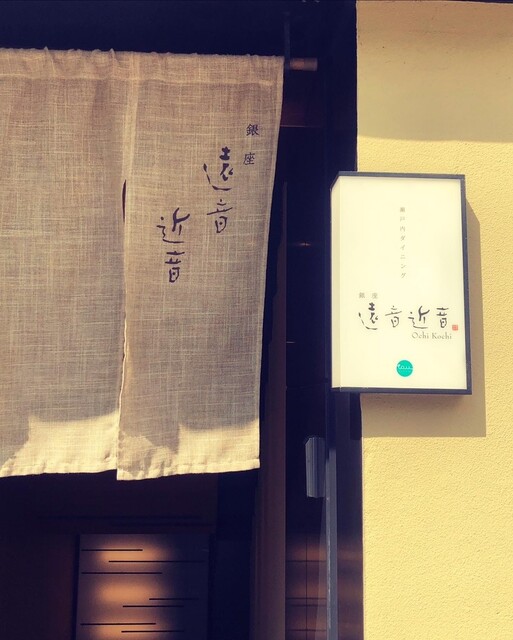 銀座
遠音
近音
瀬戸内ダイニング
銀座
遠音近音
Ochi Kochi
tau